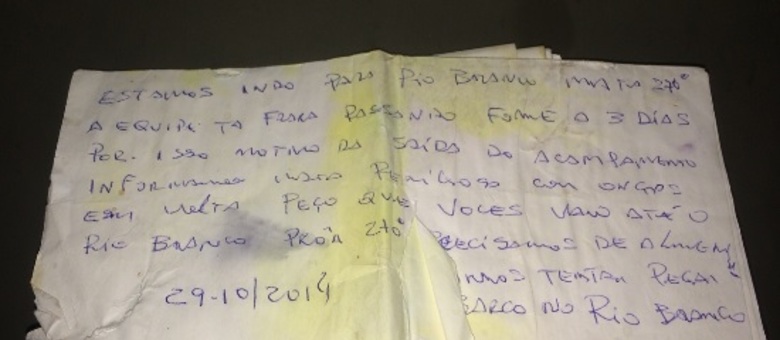 ESTAMOS INDO PARA RIO BRANCO MATA 270°
A EQUIPE TA FRACA PASSANDO FOME A 3 DIAS
POR. ISSO MOTIVO DA SAIDA DO ACAMPAMENTO
INFORMAMOS MATA PERIGOSO COM ONÇAS
EM VOLTA PEÇO QUE VOCES VAM ATÉ O
RIO BRANCO PRÔA 270° PRECISAMOS DE ALIMEN
TENTAR PEGAR
29-10/2014 BARCO NO RIO BRANCO